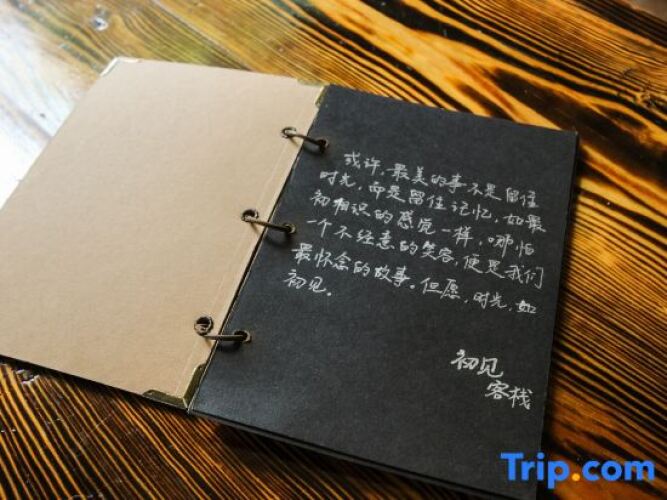 或许，最美的事不是留住
时光，而是留住记忆，如最
初相识的感觉一样，哪怕
一个不经意的笑容，便是我们
最怀念的故事。但愿，时光，如
初见。
初见
客栈
Trip.com